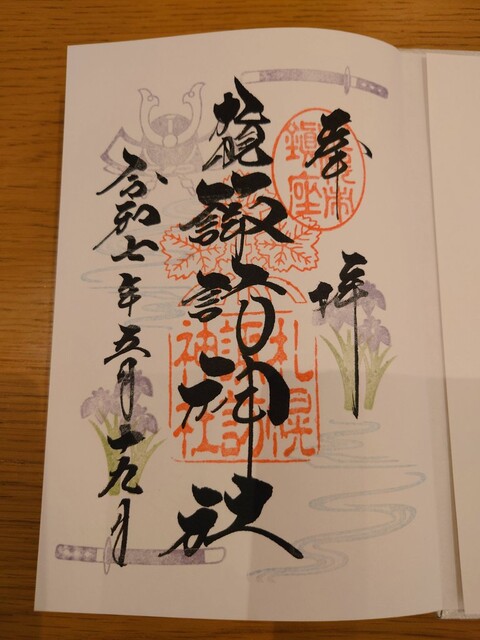 奉拝
鎮座
諏訪神社
札幌
諏訪
神社
令和七年五月十九日